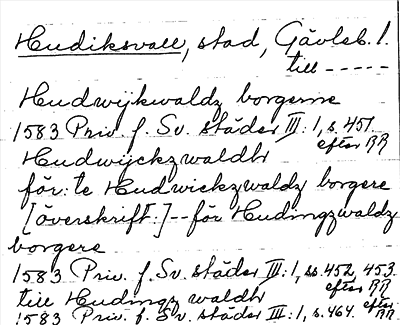 Hudiksvall, stad, Gävleb. l.
till -----
Hudwijkwaldz borgerne
1583 Priv. f. Sv. städer III:1, s. 451.
efter RR
Hudwijckzwaldh
för: te Hudwickzwaldz borgere
[överskrift:] -- för Hudingzwaldz
borgere
1583 Priv. f. Sv. städer III:1, ss. 452, 453.
efter RR
till Hudingz waldh
1583 Priv. f. Sv. städer III:1, s. 464. efter RR